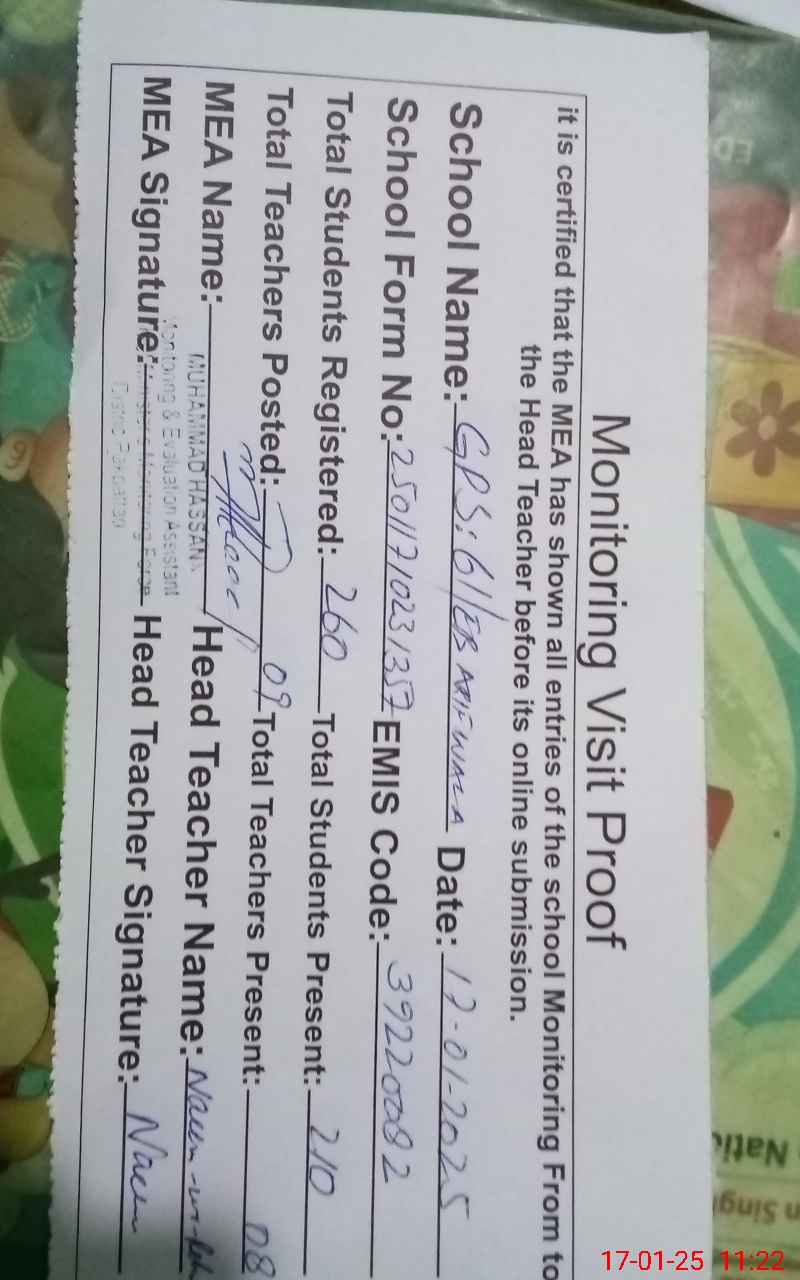 Monitoring Visit Proof
it is certified that the MEA has shown all entries of the school Monitoring From to
the Head Teacher before its online submission.
School Name: GPS: 61/EB ARIFWALA Date: 17-01-2025
School Form No: 25011710231357 EMIS Code: 39220082
Total Students Registered: 260 Total Students Present: 210
Total Teachers Posted: 09 Total Teachers Present: 08
MEA Name: MUHAMMAD HASSAN Head Teacher Name: Naeem-ur-Reh
Monitoring & Evaluation Assistant
MEA Signature: Monitoring Force Head Teacher Signature: Naeem
District Pakpattan
Nati
n Sing
17-01-25 11:22